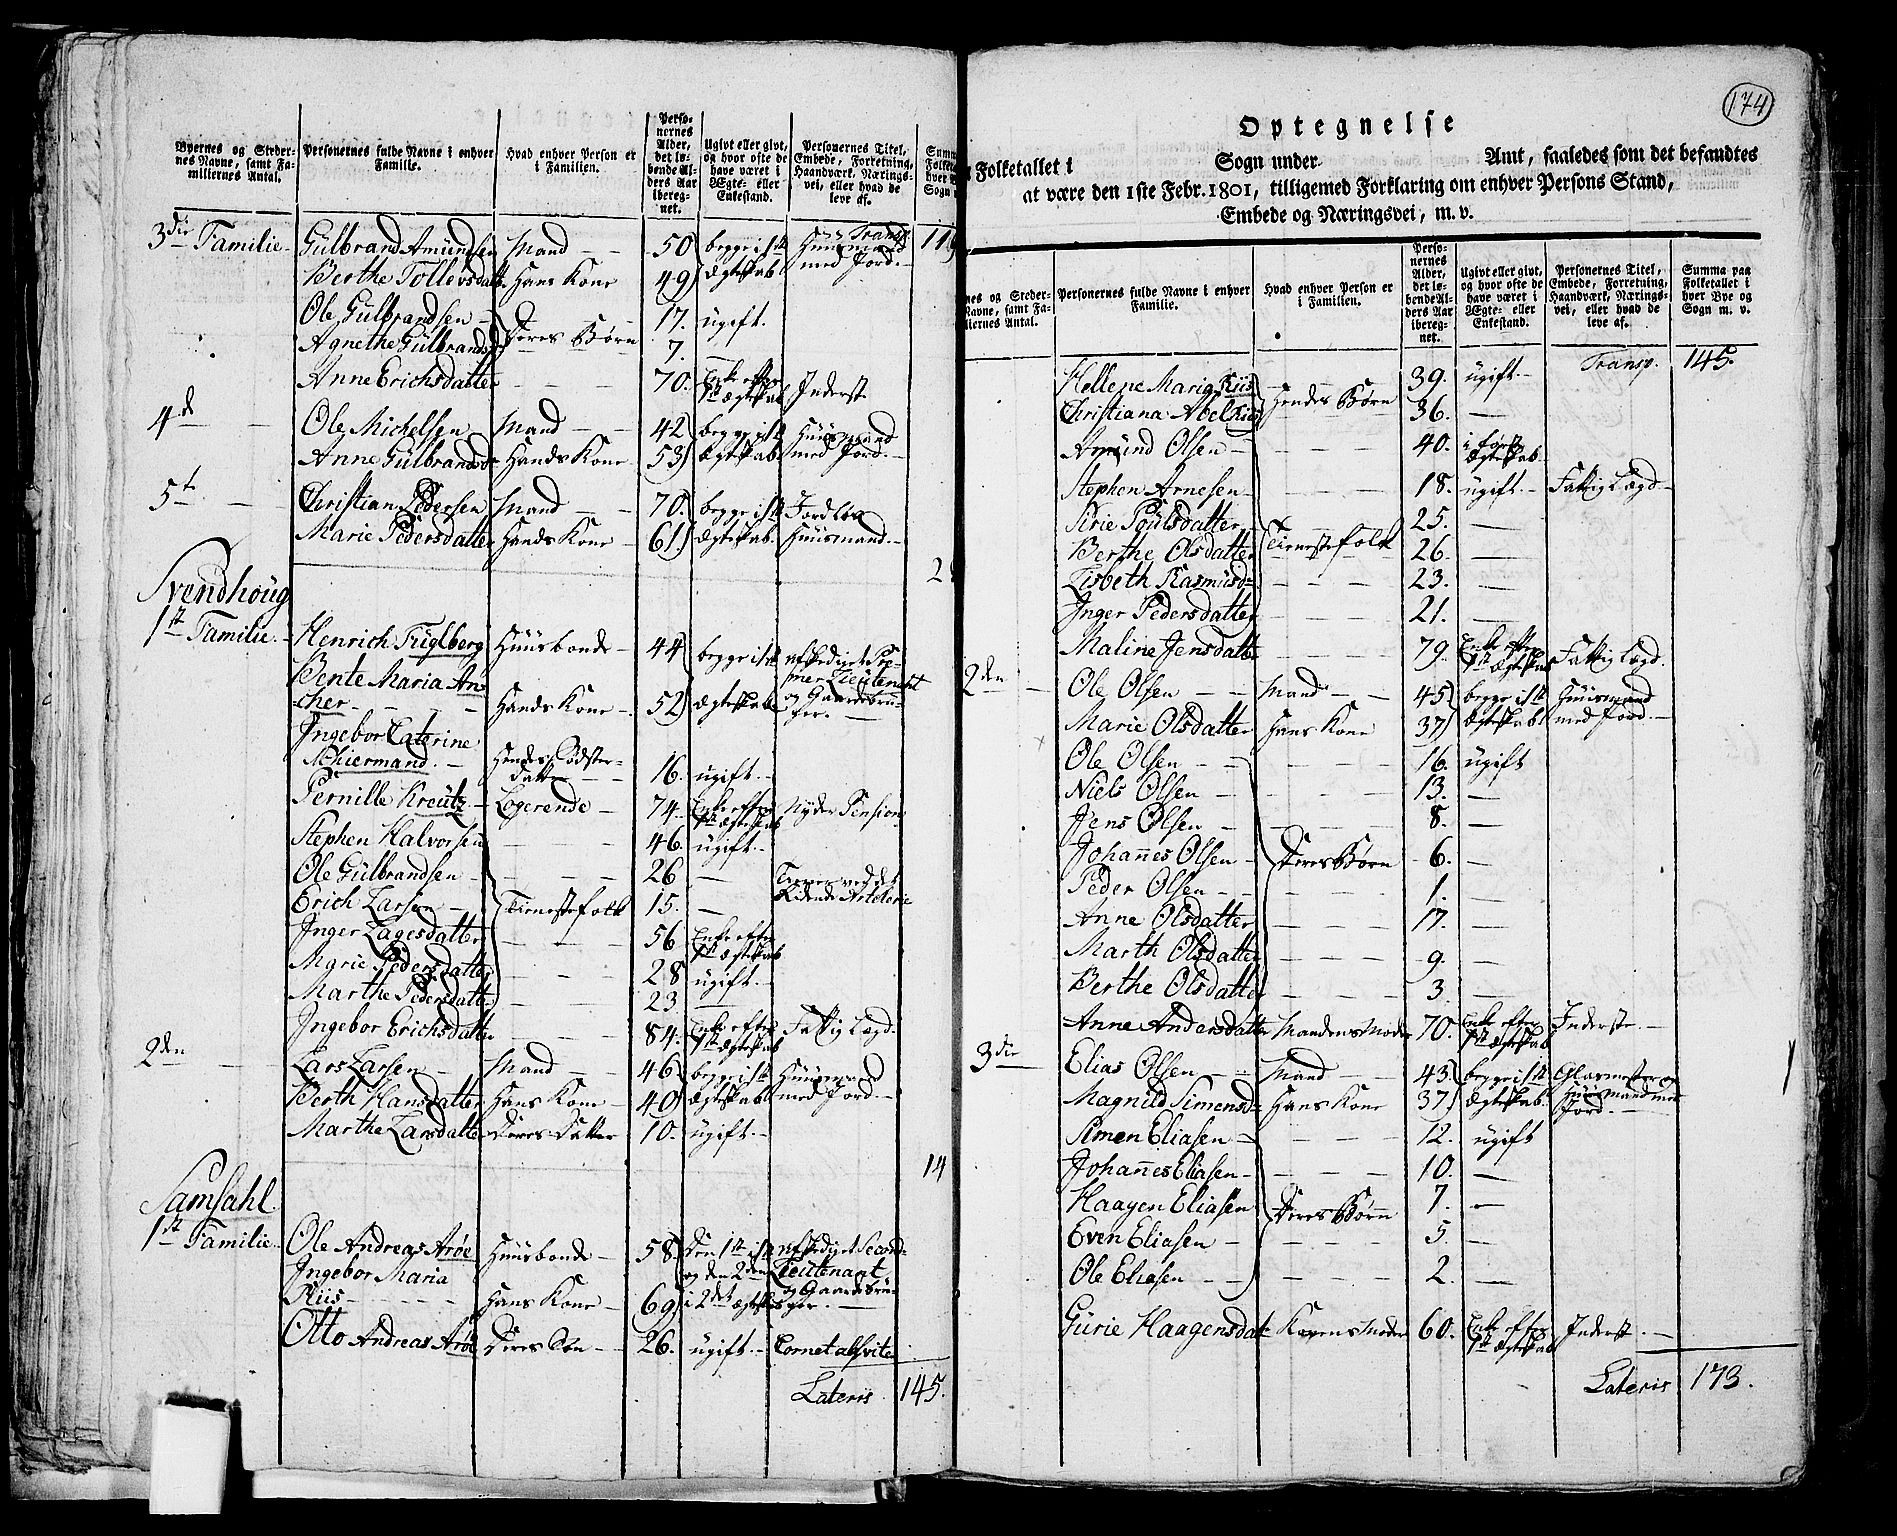 Byernes og Stedernes Navne, samt Familiernes Antal.
Personernes fulde Navne i enhver Familie.
Hvad enhver Person er i Familien.
Personernes Alder, det løbende Alders Aar iberegnet.
Ugivt eller givt, og hvor ofte de have været i Ægte- eller Enkestand.
Personernes Titel, Embede, Forretning, Haandværk, Næringsvei, eller hvad de leve af.
Transp. 119
3die Familie Gülbrand Amündsen Mand 50 begge i 1ste Huusmand
Berthe Tollevsdatt. Hans Kone 49 Ægteskab med Jord.
Ole Gülbrandsen 17. ugift.
Agnethe Gülbrandsd Deres Børn 7.
Anne Erichsdatter 70. Enke efter 1ste Ægteskab Inderst
4de Ole Michelsen Mand 42 begge i 1ste Huusmand
Anne Gülbrandsd Hands Kone 53 Ægteskab med Jord.
5te Christian Pedersen Mand 70. begge i 1ste Jordløs
Marie Pedersdatter Hands Kone 61. Ægteskab. Huusmand.
Svendhoüg
1ste Familie Henrich Früglberg Huusbonde 44 begge i 1ste
Bente Maria An-
cher Hands Kone 52 Ægteskab og Gaardbru-
ger.
Ingebor Caterine
Schiermand Hendes Sødster-
datter 16. ugift.
Pernille Kreütz Logerende 74. Enke efter 1ste Ægteskab Nyder Pension
Stephen Halvorsen 46. ugift.
Ole Gülbrandsen 26
Erich Larsen Tienestefolk 15. Ridende Artelerie
Inger Lagesdatter 56 Enke efter 1ste Ægteskab
Marie Pedersdatter 28 ugift.
Marthe Pedersdatter 23
Ingebor Erichsdatter 84. Enke efter 1ste Ægteskab Fattig Lægd.
2den Lars Larsen Mand 46 begge i 1ste Huusmand
Berth Hansdatter Hans Kone 40 Ægteskab med Jord.
Marthe Larsdatter Deres Datter 10. ugift.
14
Samsahl.
1ste Familie Ole Andreas Arøe Huusbonde 58. Den 1ste i 1ste afskediget Second-
Ingebor Maria og den 2den Lieutenant
Riis Hans Kone 69 i 2det Ægteskab og Gaardbru-
ger.
Otto Andreas Arøe Deres Søn 26. ugift. Cornet
Lateris 145.
174
Optegnelse
Folketallet i Sogn under Amt, saaledes som det befandtes
at være den 1ste Febr. 1801, tilligemed Forklaring om enhver Persons Stand,
Embede og Næringsvei, m. v.
Personernes fulde Navne i enhver Familie.
Hvad enhver Person er i Familien.
Personernes Alder, det løbende Alders Aar iberegnet.
Ugivt eller givt, og hvor ofte de have været i Ægte- eller Enkestand.
Personernes Titel, Embede, Forretning, Haandværk, Næringsvei, eller hvad de leve af.
Summa paa Folketallet i hver Bye og Sogn m. v.
Transp. 145.
Hellene Maria Riis 39. ugift.
Christiana Abel Riis Hendes Børn 36.
Amünd Olsen 40. i første Ægteskab
Stephen Arnesen 18. ugift. Fattig Lægd
Sirie Poülsdatter 25.
Berthe Olsdatter Tienestefolk 26
Lisbeth Rasmüsd 23.
Inger Pedersdatter 21.
Maline Jensdatter 79. Enke efter 1ste Ægteskab Fattig Lægd.
2den Ole Olsen Mand 45 begge i 1ste Huusmand
Marie Olsdatter Hans Kone 37 Ægteskab med Jord.
Ole Olsen 16. ugift
Niels Olsen 13.
Jens Olsen 8.
Johannes Olsen Deres Børn 6.
Peder Olsen 1.
Anne Olsdatter 17.
Marth Olsdatter 9.
Berthe Olsdatter 3.
Anne Andersdatter Mandens Moder 70. Enke efter 1ste Ægteskab Inderste.
3die Elias Olsen Mand 43. begge i 1ste Glasmester og
Magnild Simensd Hans Kone 37. Ægteskab. Huusmand med Jord.
Simen Eliasen 12. ugift
Johannes Eliasen 10.
Haagen Eliasen Deres Børn 7.
Even Eliasen 5.
Ole Eliasen 2.
Gürie Haagensdat Konens Moder 60. Enke efter 1ste Ægteskab Inderst.
Lateris 173.